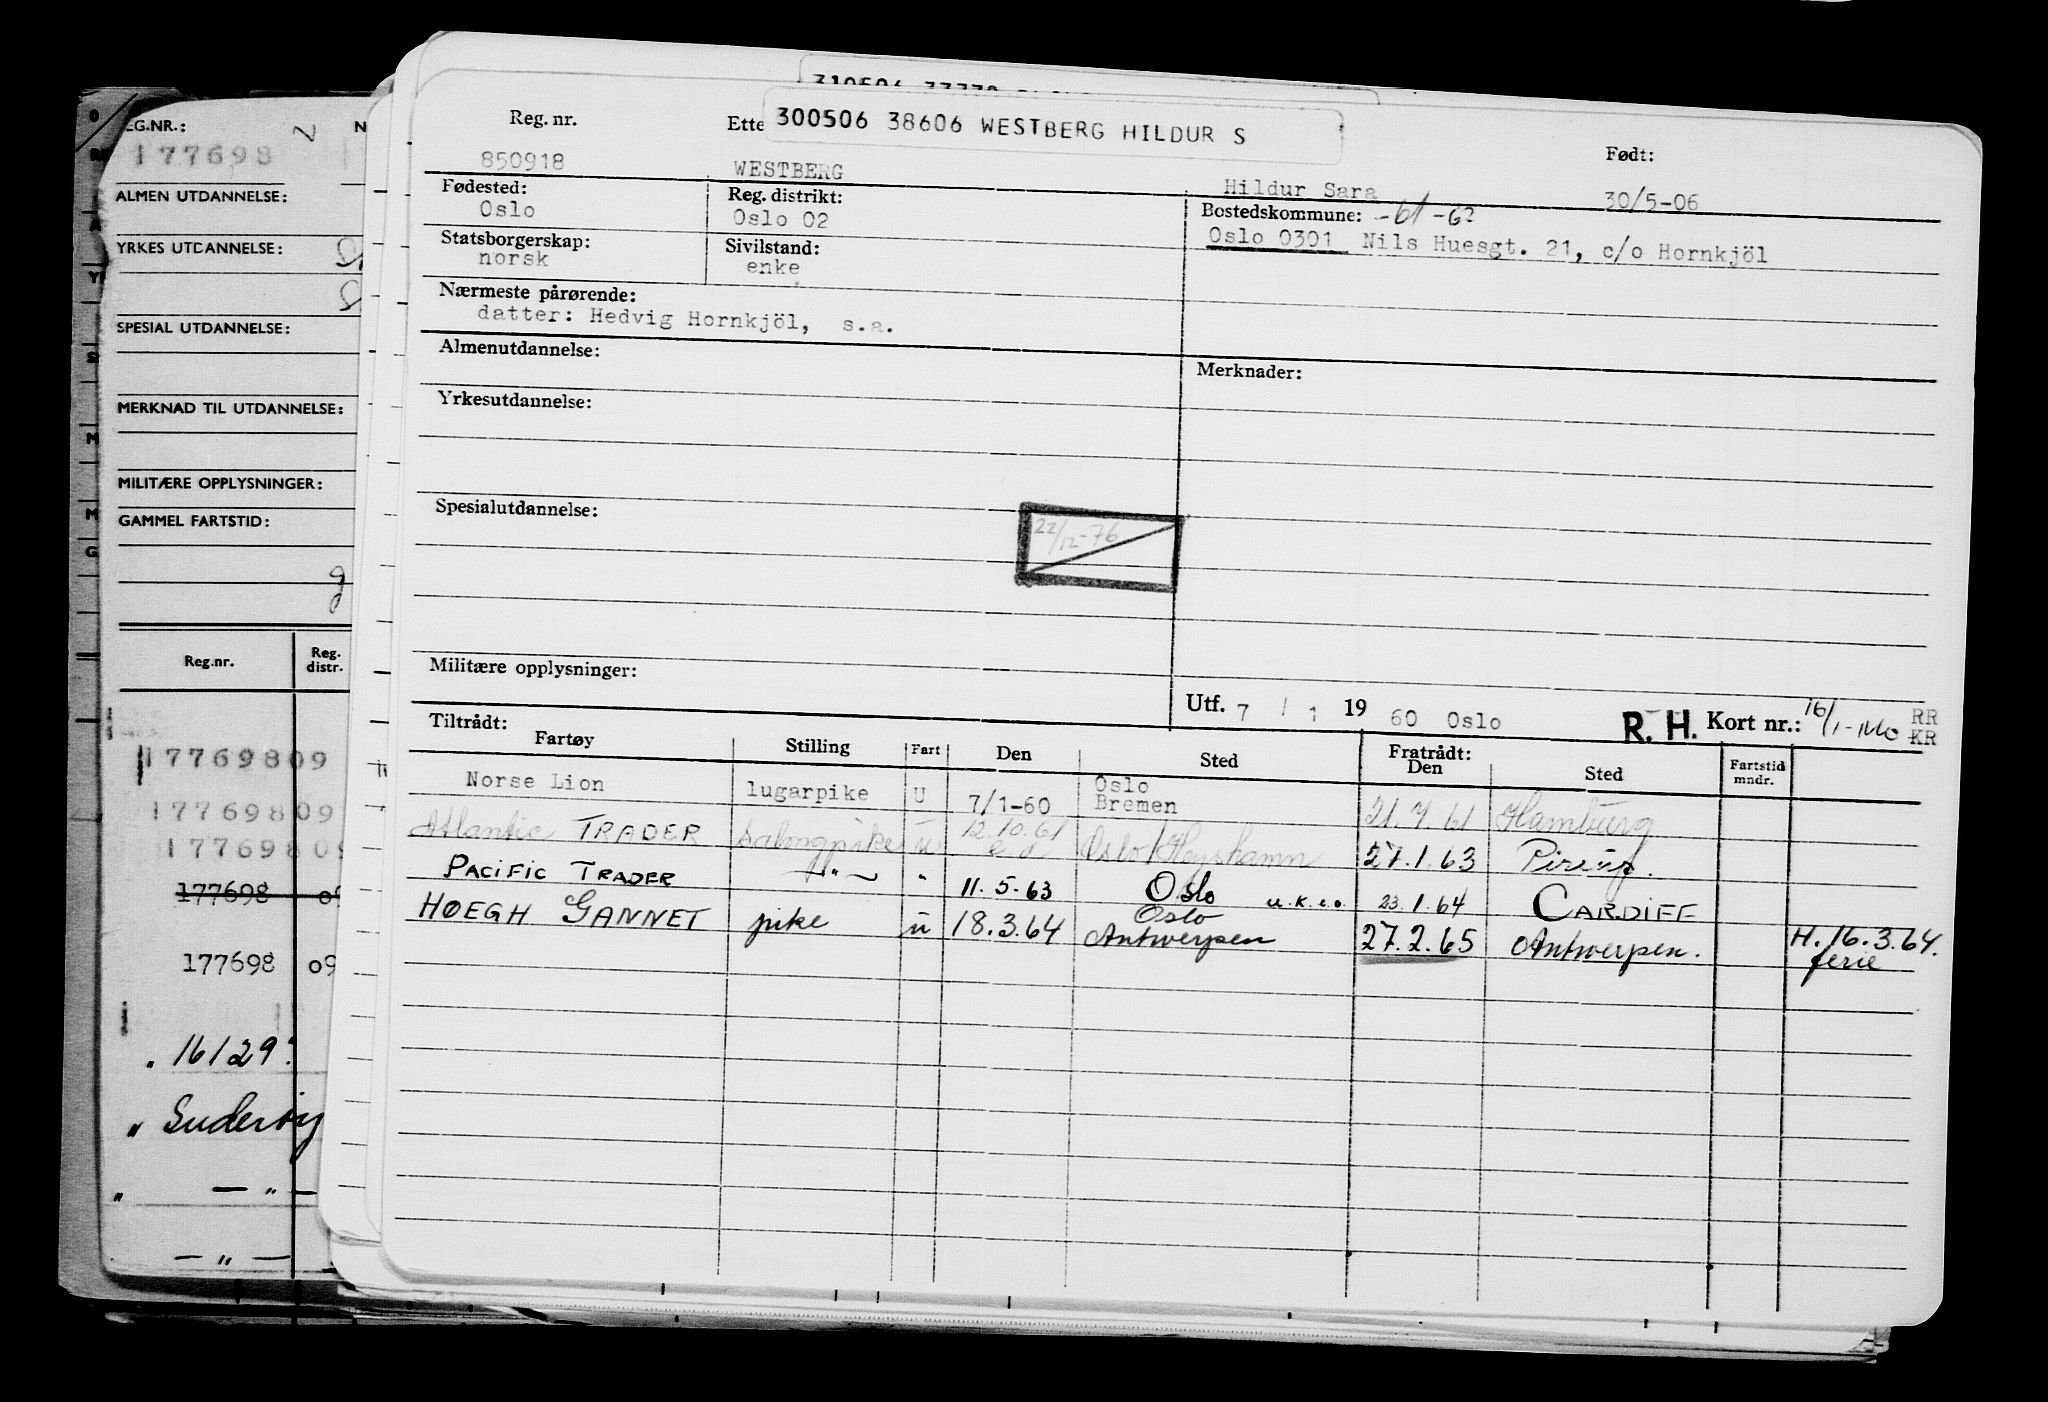 310506 33770
300506 38606 WESTBERG HILDUR S
Reg. nr. Ette Født:
850918 WESTBERG Hildur Sara 30/5-06
Fødested: Reg. distrikt: Bostedskommune: -61 -62
Oslo Oslo 02 Oslo 0301 Nils Huesgt. 21, c/o Hornkjöl
Statsborgerskap: Sivilstand:
norsk enke
Nærmeste pårørende:
datter: Hedvig Hornkjöl, s.a.
Almenutdannelse: Merknader:
Yrkesutdannelse:
Spesialutdannelse:
22/12-76
Militære opplysninger:
Utf. 7 / 1 19 60 Oslo R. H. Kort nr.: RR
KR
Tiltrådt: Fratrådt:
Fartøy Stilling Fart Den Sted Den Sted Fartstid mndr.
Norse Lion lugarpike U 7/1-60 Oslo Bremen 21.7.61 Hamburg
Atlantic TRADER salongpike u 12.10.61 Oslo/Heyshamn 27.1.63
PACIFIC TRADER —"— " 11.5.63 Oslo u.k.e.o. 23.1.64 CARDIFF
HØEGH GANNET pike u 18.3.64 Oslo Antwerpen 27.2.65 Antwerpen. H. 16.3.64.
ferie
REG.NR.: N
177698
ALMEN UTDANNELSE:
YRKES UTDANNELSE:
SPESIAL UTDANNELSE:
MERKNAD TIL UTDANNELSE:
MILITÆRE OPPLYSNINGER:
GAMMEL FARTSTID:
Reg.nr. Reg. distr.
177698 09
177698 09
177698 09
177698 09
177698 09
. 16129
" Suderøy
" —"—
—"—